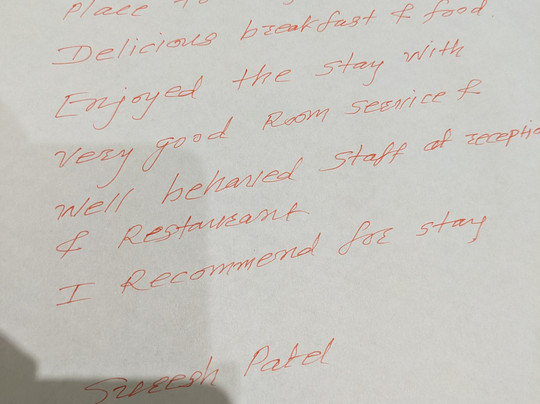 Place to
Delicious breakfast & food.
Enjoyed the stay with
very good Room service &
well behaved staff at receptio
& Restaurant
I Recommend for stay
Sureesh Patel